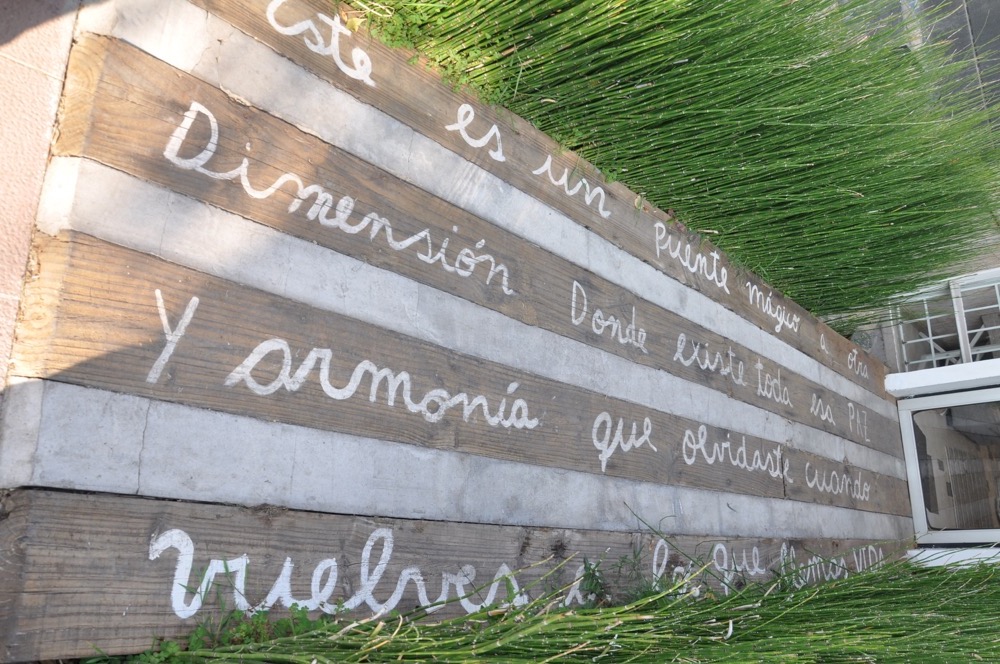 Este es un puente mágico a otra
Dimensión Donde existe toda esa PAZ
Y armonía que olvidaste cuando
vuelves a lo que llamas VIDA